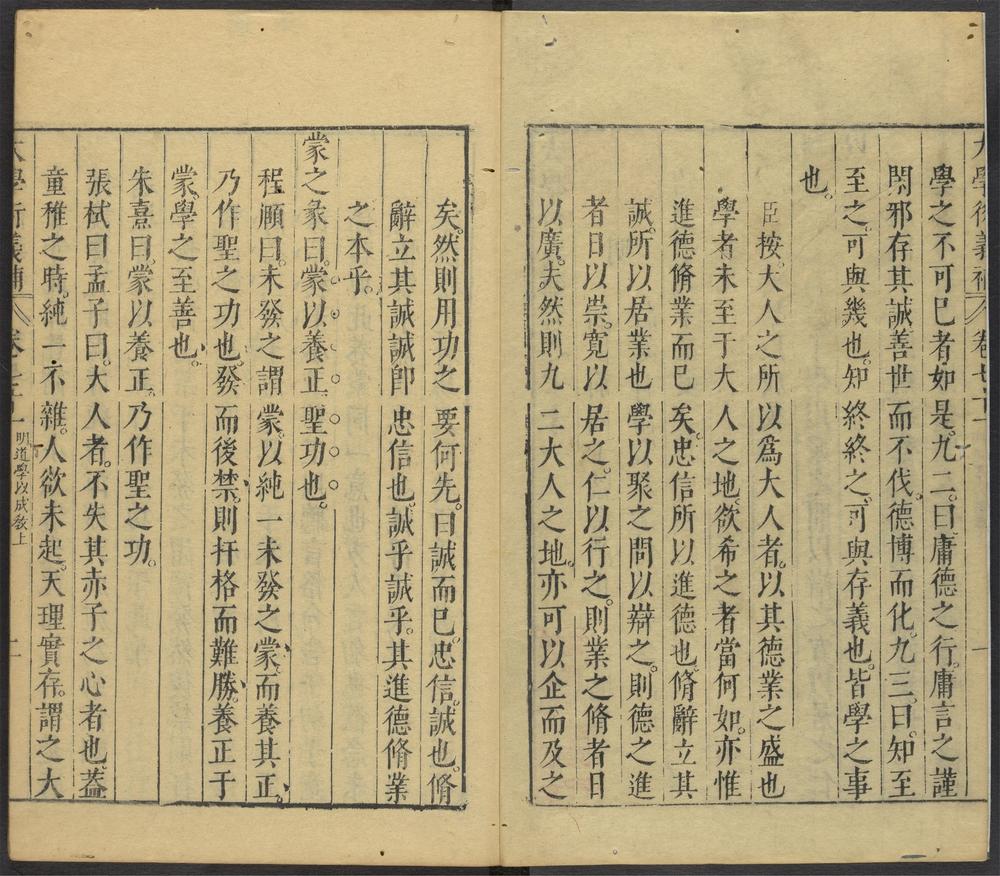 大學衍義補 卷七十一
學之不可巳者如是。九二曰庸德之行。庸言之謹
閑邪存其誠善世而不伐。德博而化。九三曰。知至
至之。可與幾也。知終終之。可與存義也。皆學之事
也。
臣按。大人之所以爲大人者。以其德業之盛也
學者未至于大人之地。欲希之者當何如。亦惟
進德脩業而巳矣。忠信所以進德也。脩辭立其
誠。所以居業也學以聚之問以辯之。則德之進
者日以崇。寛以居之。仁以行之。則業之脩者日
以廣。夫然則九二大人之地。亦可以企而及之
矣。然則用功之要何先。曰誠而巳。忠信。誠也。脩
辭立其誠誠卽忠信也。誠乎誠乎。其進德脩業
之本乎。
蒙之彖曰。蒙以養正。聖功也。
程頤曰。未發之謂蒙。以純一未發之蒙。而養其正。
乃作聖之功也。發而後禁。則扞格而難勝。養正于
蒙。學之至善也。
朱熹曰。蒙以養正。乃作聖之功。
張栻曰。孟子曰。大人者。不失其赤子之心者也。蓋
童稚之時。純一不雜。人欲未起。天理實存。謂之大
大學衍義補 明道學以成敎上 二